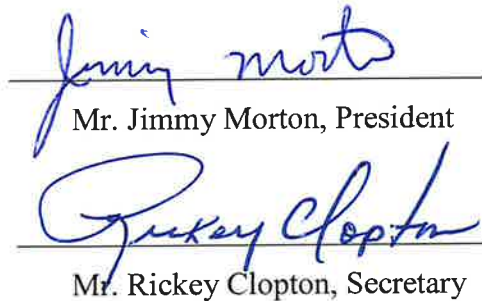 Jimmy Morton
Mr. Jimmy Morton, President
Rickey Clopton
Mr. Rickey Clopton, Secretary